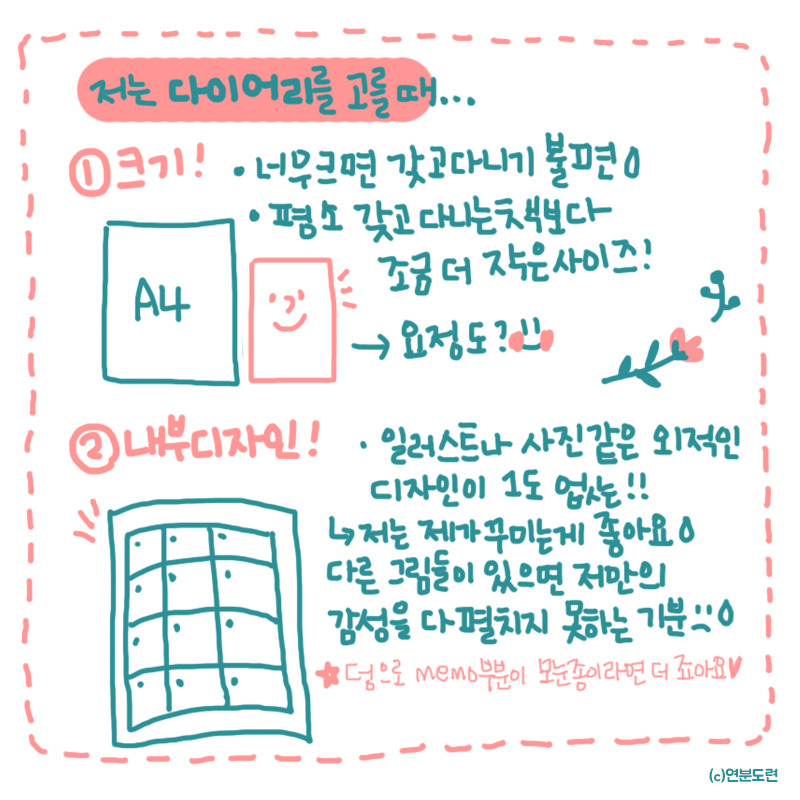 저는 다이어리를 고를 때...
① 크기!
• 너무크면 갖고다니기 불편
• 평소 갖고 다니는책보다
조금 더 작은사이즈!
A4
→ 요정도?
② 내부디자인!
• 일러스트나 사진같은 외적인
디자인이 1도 없는!!
↳ 저는 제가꾸미는게 좋아요
다른 그림들이 있으면 저만의
감성을 다 펼치지 못하는 기분
★ 덤으로 memo부분이 모눈종이라면 더 죠아요♥
(c)연분도련